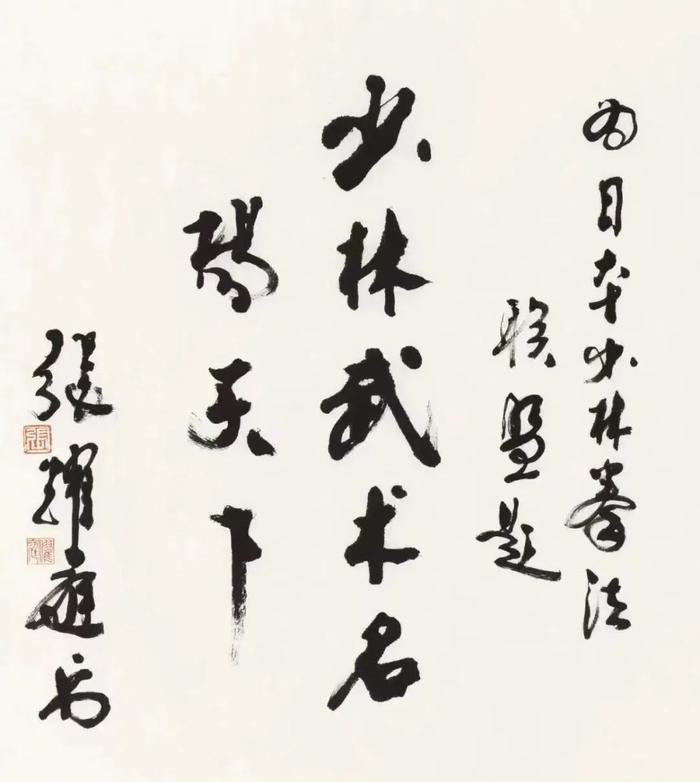 为日本少林拳法
联盟题
少林武术名
扬天下
张耀庭书